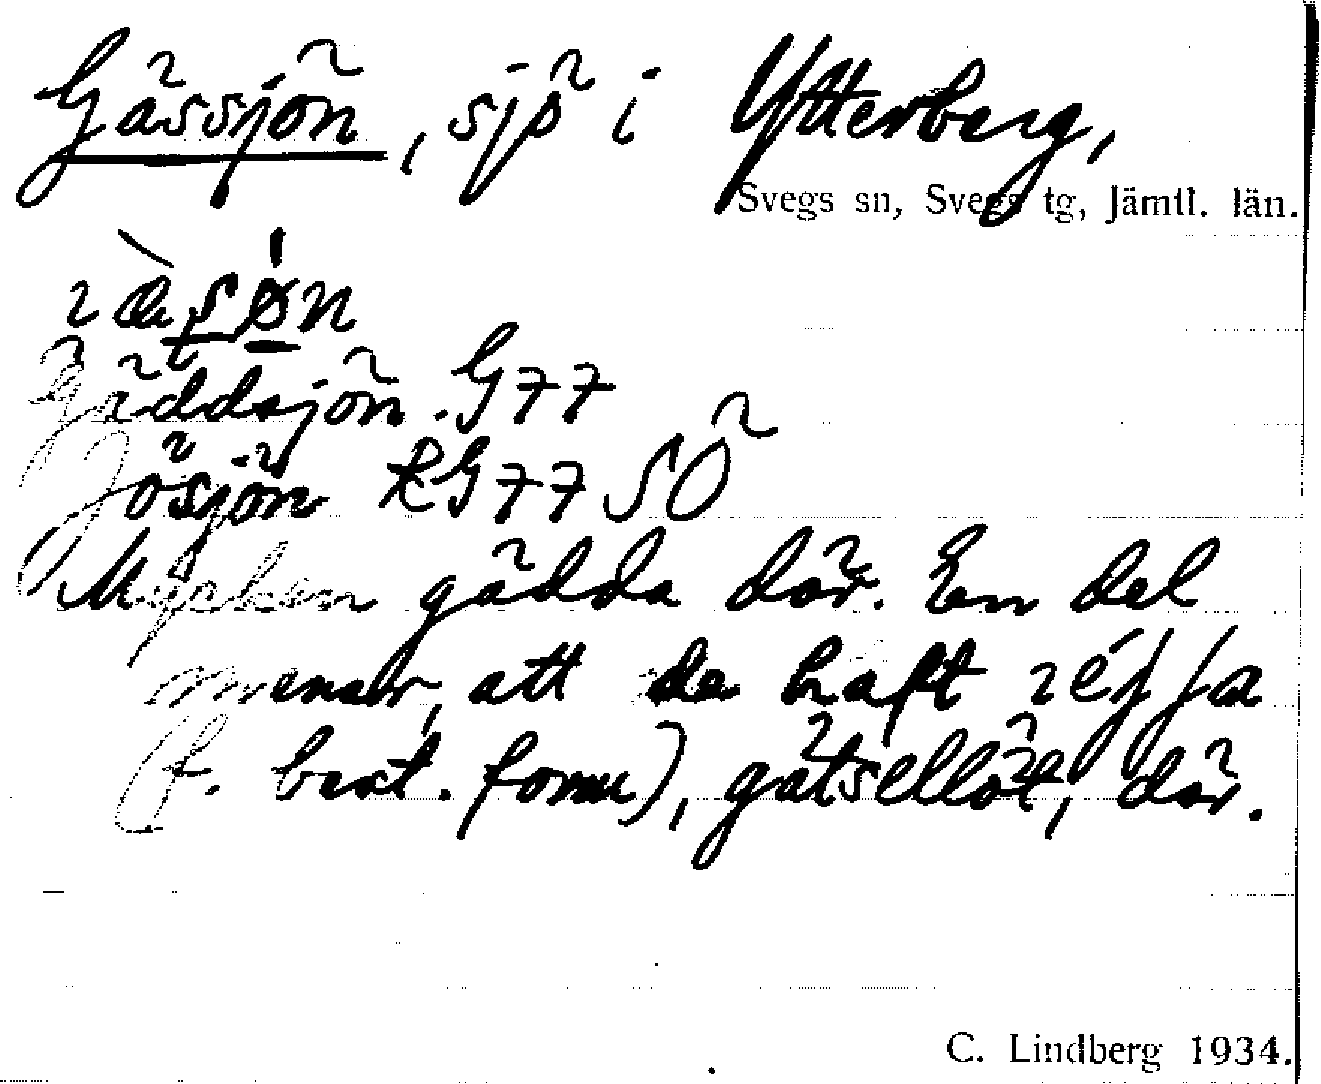 Gässjön, sjö i Ytterberg,
Svegs sn, Svegs tg, Jämtl. län.
Gäddsjön. G77
Jösjön RG77 SÖ
Mycken gädda där. En del
menar, att de haft
(f. best. form), gätsellöt, där.
C. Lindberg 1934.